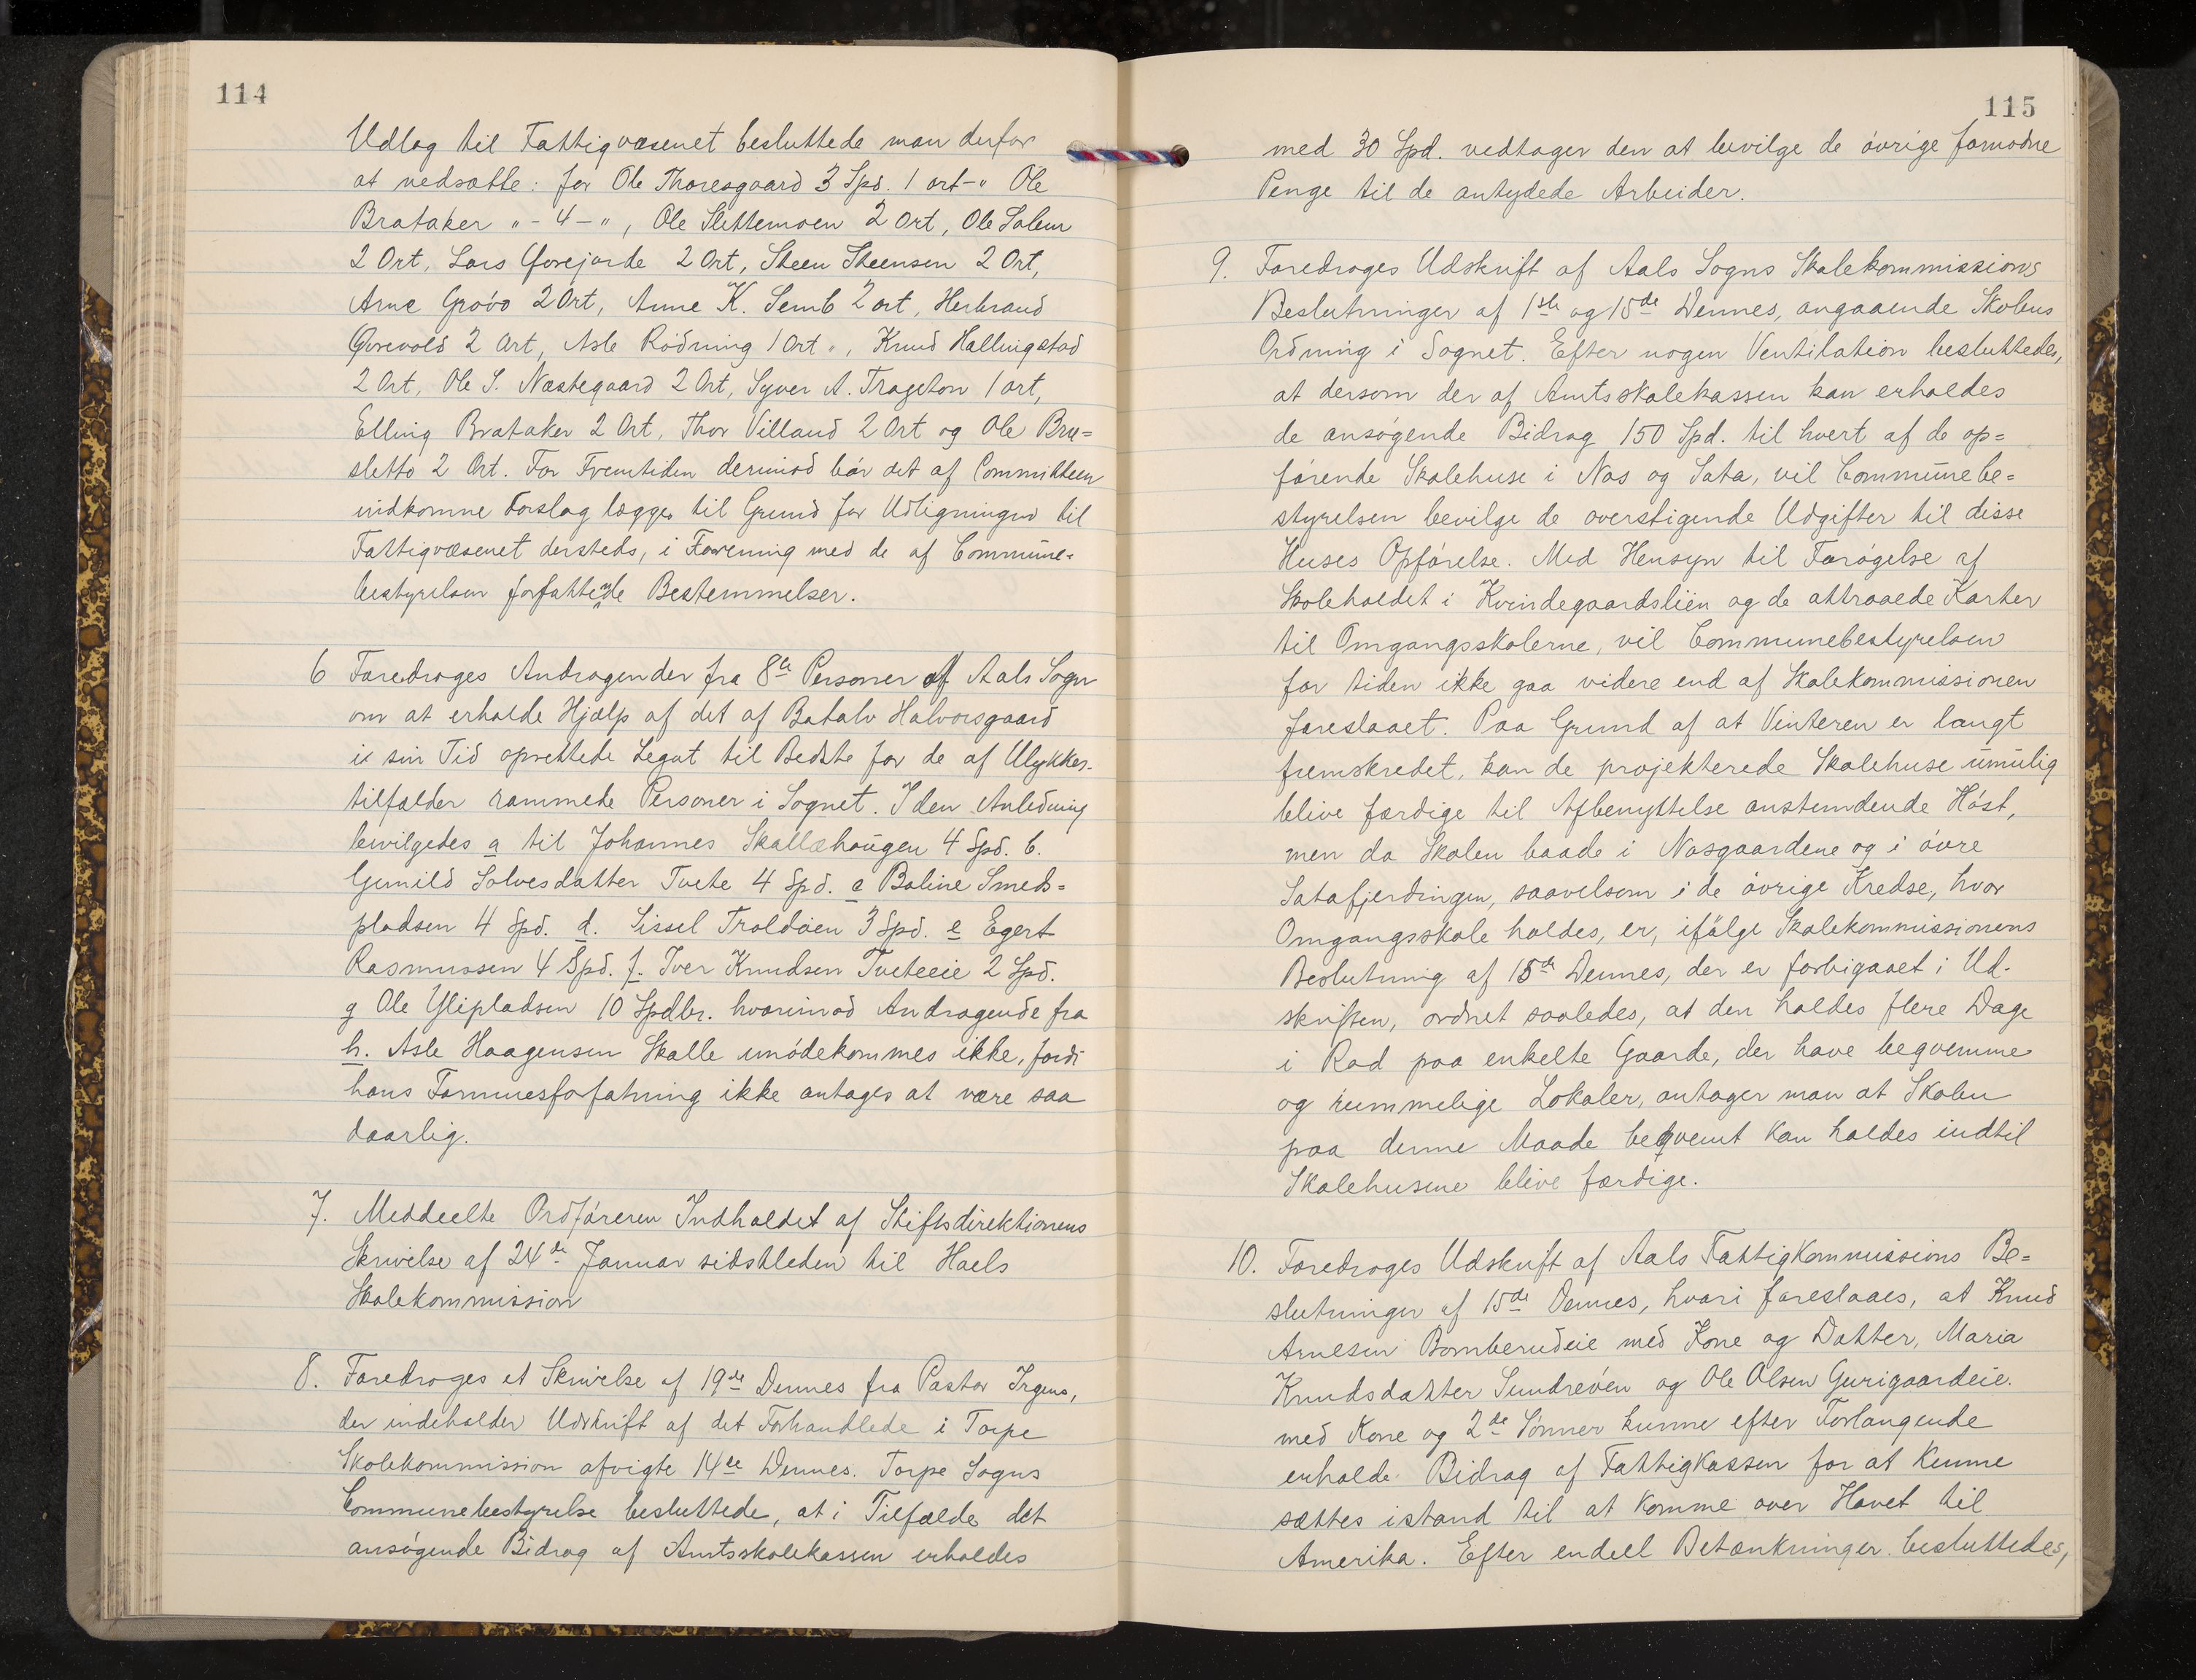 114
Udlag til Fattigvæsenet besluttede man derfor
at nedsætte: for Ole Thoresgaard 3 Spd. 1 ort-" Ole
Brataker " - 4 - ", Ole Slettemoen 2 Ort, Ole Solem
2 Ort, Lars Gjorejorde 2 Ort, Steen Steensen 2 Ort,
Arne Grövo 2 Ort, Anne K. Semb 2 ort, Herbrand
Qvevold 2 Ort, Asle Rödning 1 Ort ", Knud Hallingstad
2 Ort, Ole S. Næstegaard 2 Ort, Syver A. Trageton 1 ort,
Elling Brataker 2 Ort, Thor Villand 2 Ort og Ole Bru=
sletto 2 Ort. For Fremtiden derimod bör det af Committeen
indkomne Forslag lægges til Grund for Udligningen til
Fattigvæsenet dersteds, i Forening med de af Commune-
bestyrelsen forfattende Bestemmelser.
6 Foredroges Andragender fra 8te Personer af Aals Sogn
om at erholde Hjælp af det af Botolv Halvorsgaard
i sin Tid oprettede Legat til Bedste for de af Ulykkes-
tilfælder rammede Personer i Sognet. I den Anledning
bevilgedes a til Johannes Skallehaugen 4 Spd. b.
Gunild Solvesdatter Tveite 4 Spd. c Boline Smeds=
pladsen 4 Spd. d. Sissel Troldöen 3 Spd. e Egert
Rasmussen 4 Spd. f. Iver Knudsen Tveteeie 2 Spd.
g Ole Ylipladsen 10 Spdlr. hvorimod Andragende fra
h. Asle Haagensen Skalle imödekommes ikke, fordi
hans Formuesforfatning ikke antages at være saa
daarlig.
7. Meddeelte Ordföreren Indholdet af Stiftsdirektionens
Skrivelse af 24de Januar sidstleden til Haels
Skolekommission
8. Foredroges et Skrivelse af 19de Dennes fra Pastor Irgens,
der indeholder Udskrift af det Forhandlede i Torpe
Skolekommission afvigte 14de Dennes. Torpe Sogns
Communebestyrelse besluttede, at i Tilfælde det
ansögende Bidrag af Amtsskolekassen erholdes
115
med 30 Spd. vedtager den at bevilge de övrige fornødne
Penge til de antydede Arbeider.
9. Foredroges Udskrift af Aals Sogns Skolekommissions
Beslutninger af 1ste og 15de Dennes, angaaende Skolens
Ordning i Sognet. Efter nogen Ventilation besluttedes,
at dersom der af Amtsskolekassen kan erholdes
de ansögende Bidrag 150 Spd. til hvert af de op=
förende Skolehuse i Nos og Sata, vil Communebe=
styrelsen bevilge de overstigende Udgifter til disse
Huses Opförelse. Med Hensyn til Forögelse af
Skoleholdet i Kvindegaardslien og de attraaede Karter
til Omgangsskolerne, vil Communebestyrelsen
for tiden ikke gaa videre end af Skolekommissionen
foreslaaet. Paa Grund af at Vinteren er langt
fremskredet, kan de projekterede Skolehuse umulig
blive færdige til Afbenyttelse anstundende Höst,
men da Skolen baade i Nosgaardene og i övre
Satafjerdingen, saavelsom i de övrige Kredse, hvor
Omgangsskole holdes, er, ifölge Skolekommissionens
Beslutning af 15de Dennes, der er forbigaaet i Ud-
skriften, ordnet saaledes, at den holdes flere Dage
i Rad paa enkelte Gaarde, der have beqvemme
og rummelige Lokaler, antager man at Skolen
paa denne Maade beqvemt kan holdes indtil
Skolehusene blive færdige.
10. Foredroges Udskrift af Aals Fattigkommissions Be=
slutninger af 15de Dennes, hvori foreslaaes, at Knud
Arnesen Bomberudeie med Kone og Datter, Maria
Knudsdatter Sundreöen og Ole Olsen Gurigaardeie.
med Kone og 2de Sönner kunne efter Forlangende
erholde Bidrag af Fattigkassen for at kunne
sættes istand til at komme over Havet til
Amerika. Efter endell Betænkninger besluttedes,